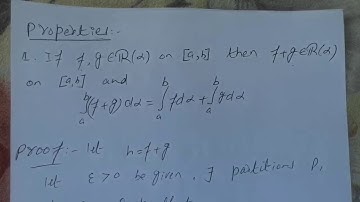 Properties:-
1. If f, g ∈ R(α) on [a,b] then f+g ∈ R(α)
on [a,b] and
∫ₐᵇ (f+g) dα = ∫ₐᵇ f dα + ∫ₐᵇ g dα
Proof:- Let h = f+g
Let ε > 0 be given, ∃ partitions P,